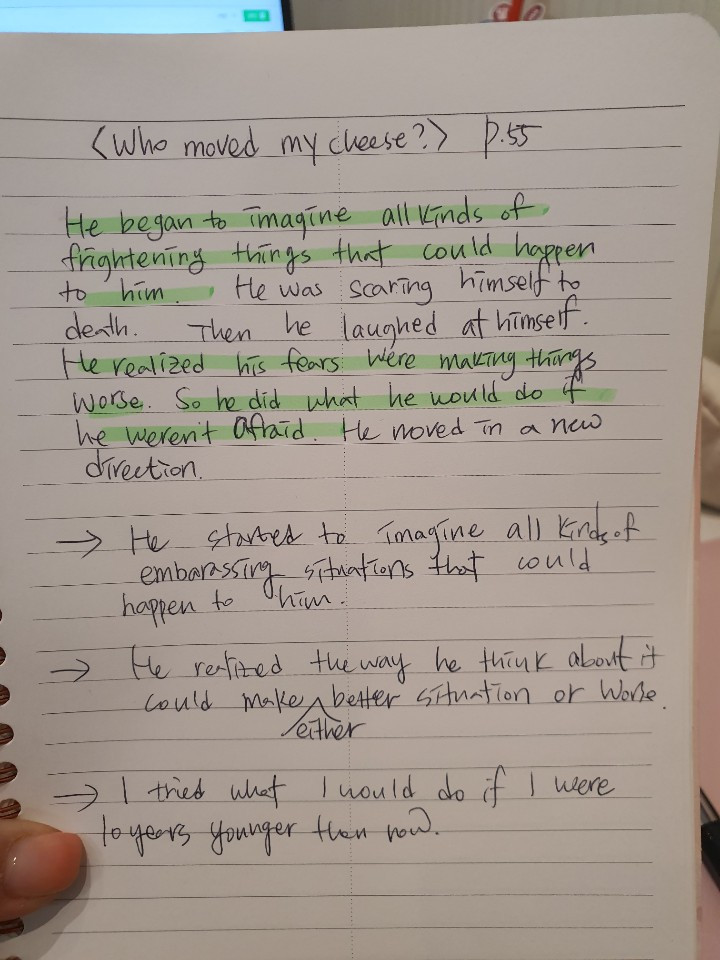 <Who moved my cheese?> P.55
He began to imagine all kinds of
frightening things that could happen
to him. He was scaring himself to
death. Then he laughed at himself.
He realized his fears were making things
worse. So he did what he would do if
he weren't afraid. He moved in a new
direction.
→ He started to imagine all kinds of
embarassing situations that could
happen to him.
→ He realized the way he think about it
could make better situation or worse.
either
→ I tried what I would do if I were
10 years younger then now.